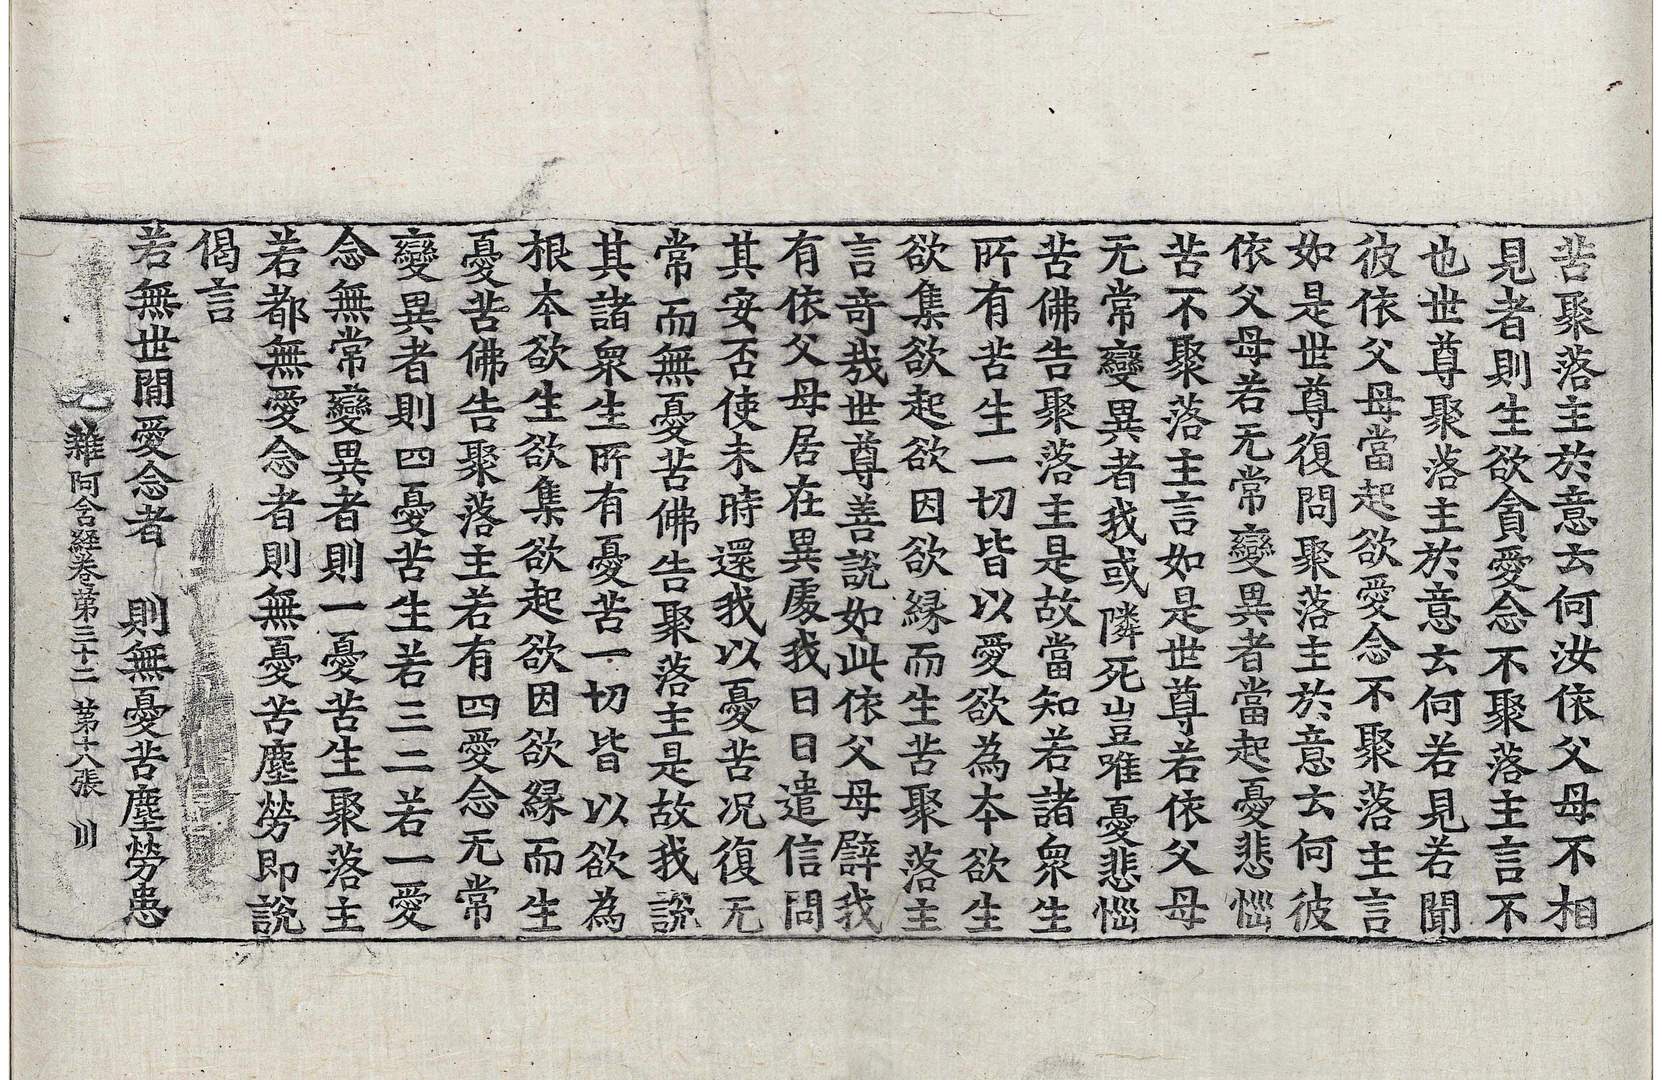 苦聚落主於意云何汝依父母不相
見者則生欲貪愛念不聚落主言不
也世尊聚落主於意云何若見若聞
彼依父母當起欲愛念不聚落主言
如是世尊復問聚落主於意云何彼
依父母若无常變異者當起憂悲惱
苦不聚落主言如是世尊若依父母
无常變異者我或隣死豈唯憂悲惱
苦佛告聚落主是故當知若諸衆生
所有苦生一切皆以愛欲為本欲生
欲集欲起欲因欲縁而生苦聚落主
言奇哉世尊善說如此依父母譬我
有依父母居在異處我日日遣信問
其安否使未時還我以憂苦况復无
常而無憂苦佛告聚落主是故我說
其諸衆生所有憂苦一切皆以欲為
根本欲生欲集欲起欲因欲縁而生
憂苦佛告聚落主若有四愛念无常
變異者則四憂苦生若三二若一愛
念無常變異者則一憂苦生聚落主
若都無愛念者則無憂苦塵勞即說
偈言
若無世間愛念者 則無憂苦塵勞患
雜阿含經卷第三十二 第十六張 川